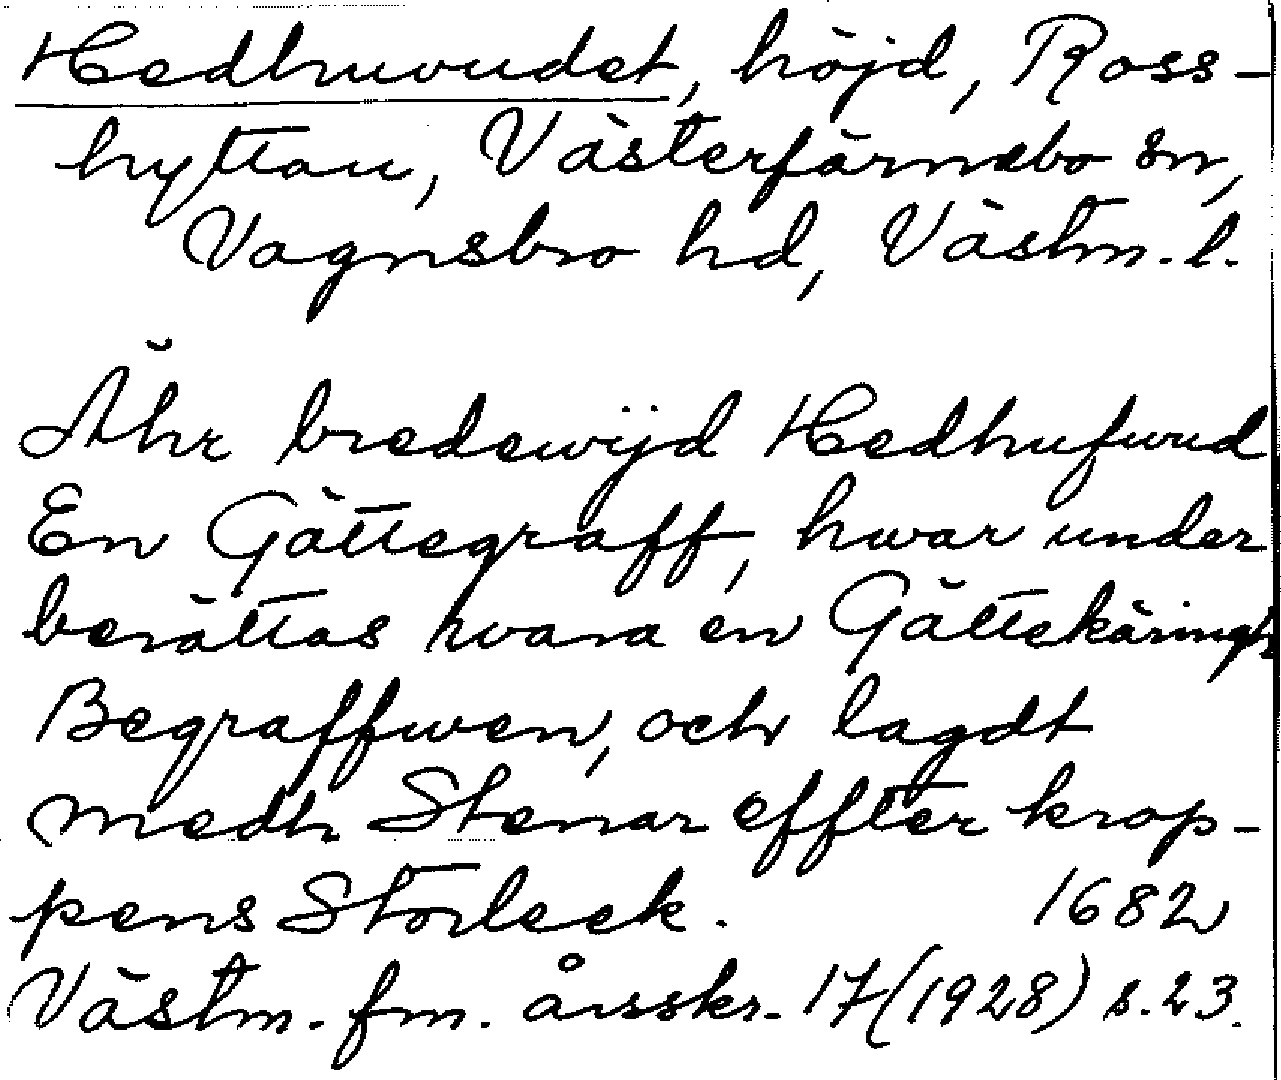 Hedhuvudet, höjd, Ross-
hyttan, Västerfärnebo sn,
Vagnsbro hd, Västm. l.
Ähr bredewijd Hedhufwud
En Gättegraff, hwar under
berättas wara en Gättekäringh
Begraffwen, och lagdt
medh Stenar effter krop-
pens Storleek. 1682
Västm. fm. årsskr. 17 (1928) s. 23.